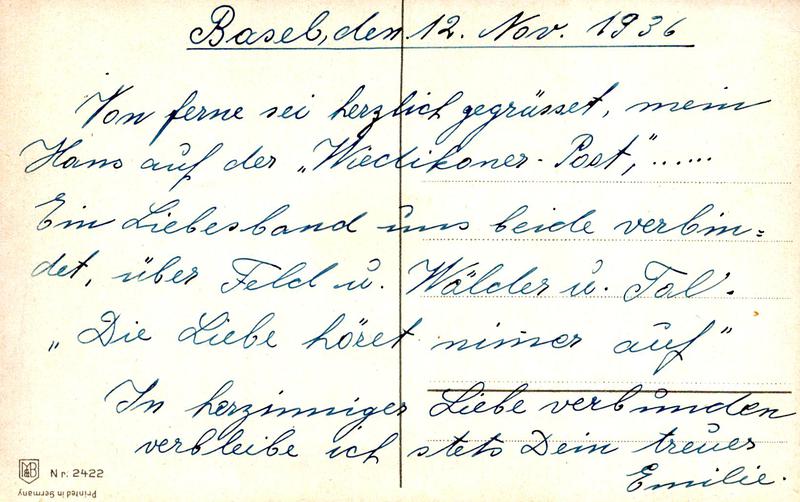 Basel, den 12. Nov. 1936
Von ferne sei herzlich gegrüsset, mein
Hans auf der „Wiedikoner-Post," ......
Ein Liebesband uns beide verbin=
det, über Feld u. Wälder u. Tal.
„Die Liebe höret nim̄er auf"
In herzinniger Liebe verbunden
verbleibe ich stets Dein treuer
Emilie.
M&B Nr. 2422
Printed in Germany